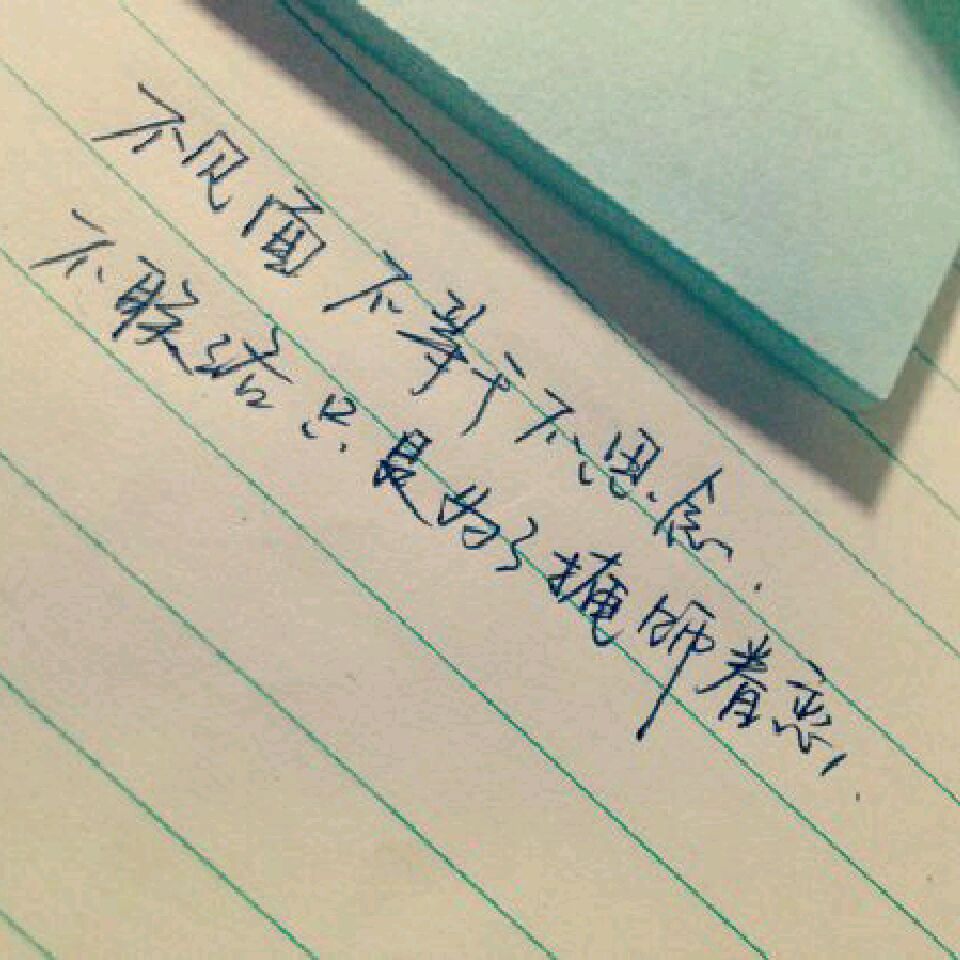 不见面不等于不思念.
不联络只是为了掩师眷恋,